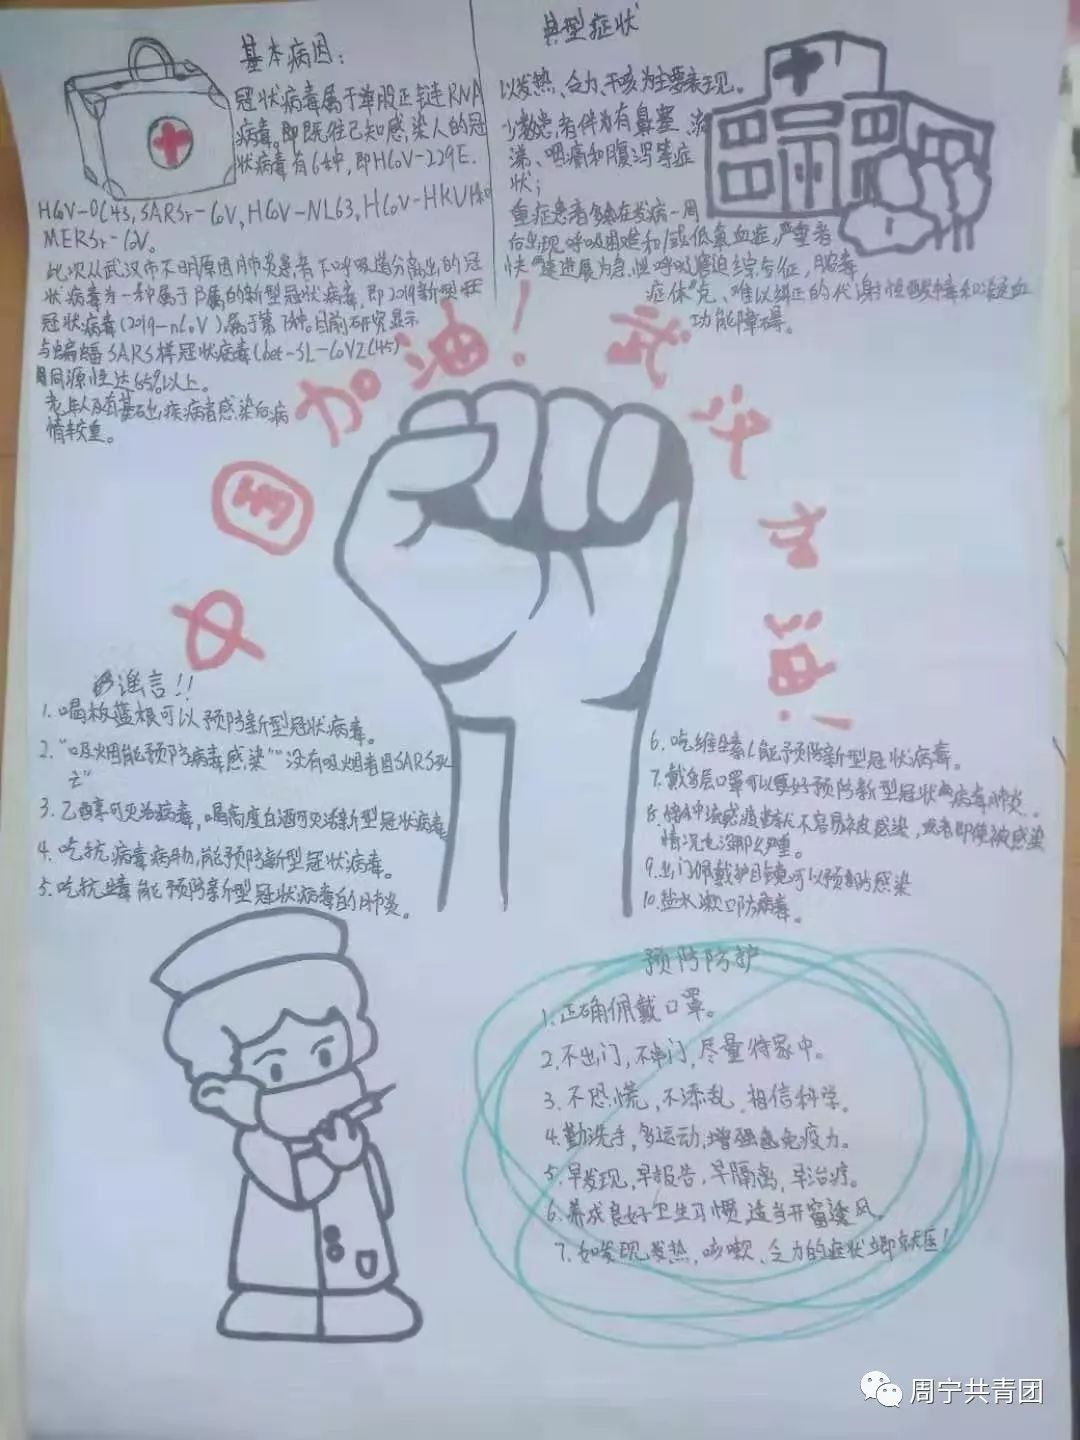 基本病因：
冠状病毒属于单股正链RNA
病毒。即既往已知感染人的冠
状病毒有6种，即HCoV-229E.
HCoV-OC43,SARSr-CoV,HCoV-NL63,HCoV-HKU1和
MERSr-CoV。
此次从武汉市不明原因肺炎患者下呼吸道分离出的冠
状病毒为一种属于β属的新型冠状病毒，即2019新型
冠状病毒(2019-nCoV),属于第7种。目前研究显示
与蝙蝠SARS样冠状病毒(bat-SL-CoVZC45)
同源性达85%以上。
老年人及有基础疾病者感染后病
情较重。
典型症状
以发热、乏力、干咳为主要表现。
少数患者伴有鼻塞、流
涕、咽痛和腹泻等症
状；
重症患者多在发病一周
后出现呼吸困难和/或低氧血症，严重者
快速进展为急性呼吸窘迫综合征，脓毒
症休克、难以纠正的代谢性酸中毒和凝血
功能障碍。
中国加油！
武汉加油！
谣言！！
1.喝板蓝根可以预防新型冠状病毒。
2."吸烟能预防病毒感染""没有吸烟者因SARS死
亡"
3.乙醇可灭活病毒，喝高度白酒可灭活新型冠状病毒
4.吃抗病毒药物，能预防新型冠状病毒。
5.吃抗生素能预防新型冠状病毒的肺炎。
6.吃维生素C能预防新型冠状病毒。
7.戴多层口罩可以更好预防新型冠状病毒肺炎.
8.流感疫苗就不容易被感染，或者即使被感染
情况也没那么严重。
9.出门佩戴护目镜可以预防感染
10.盐水漱口防病毒。
预防防护
1.正确佩戴口罩。
2.不出门，不串门，尽量待家中。
3.不恐慌，不添乱.相信科学。
4.勤洗手，多运动，增强免疫力。
5.早发现，早报告，早隔离，早治疗。
6.养成良好卫生习惯,适当开窗透风。
7.如发现发热，咳嗽、乏力的症状立即就医！
周宁共青团